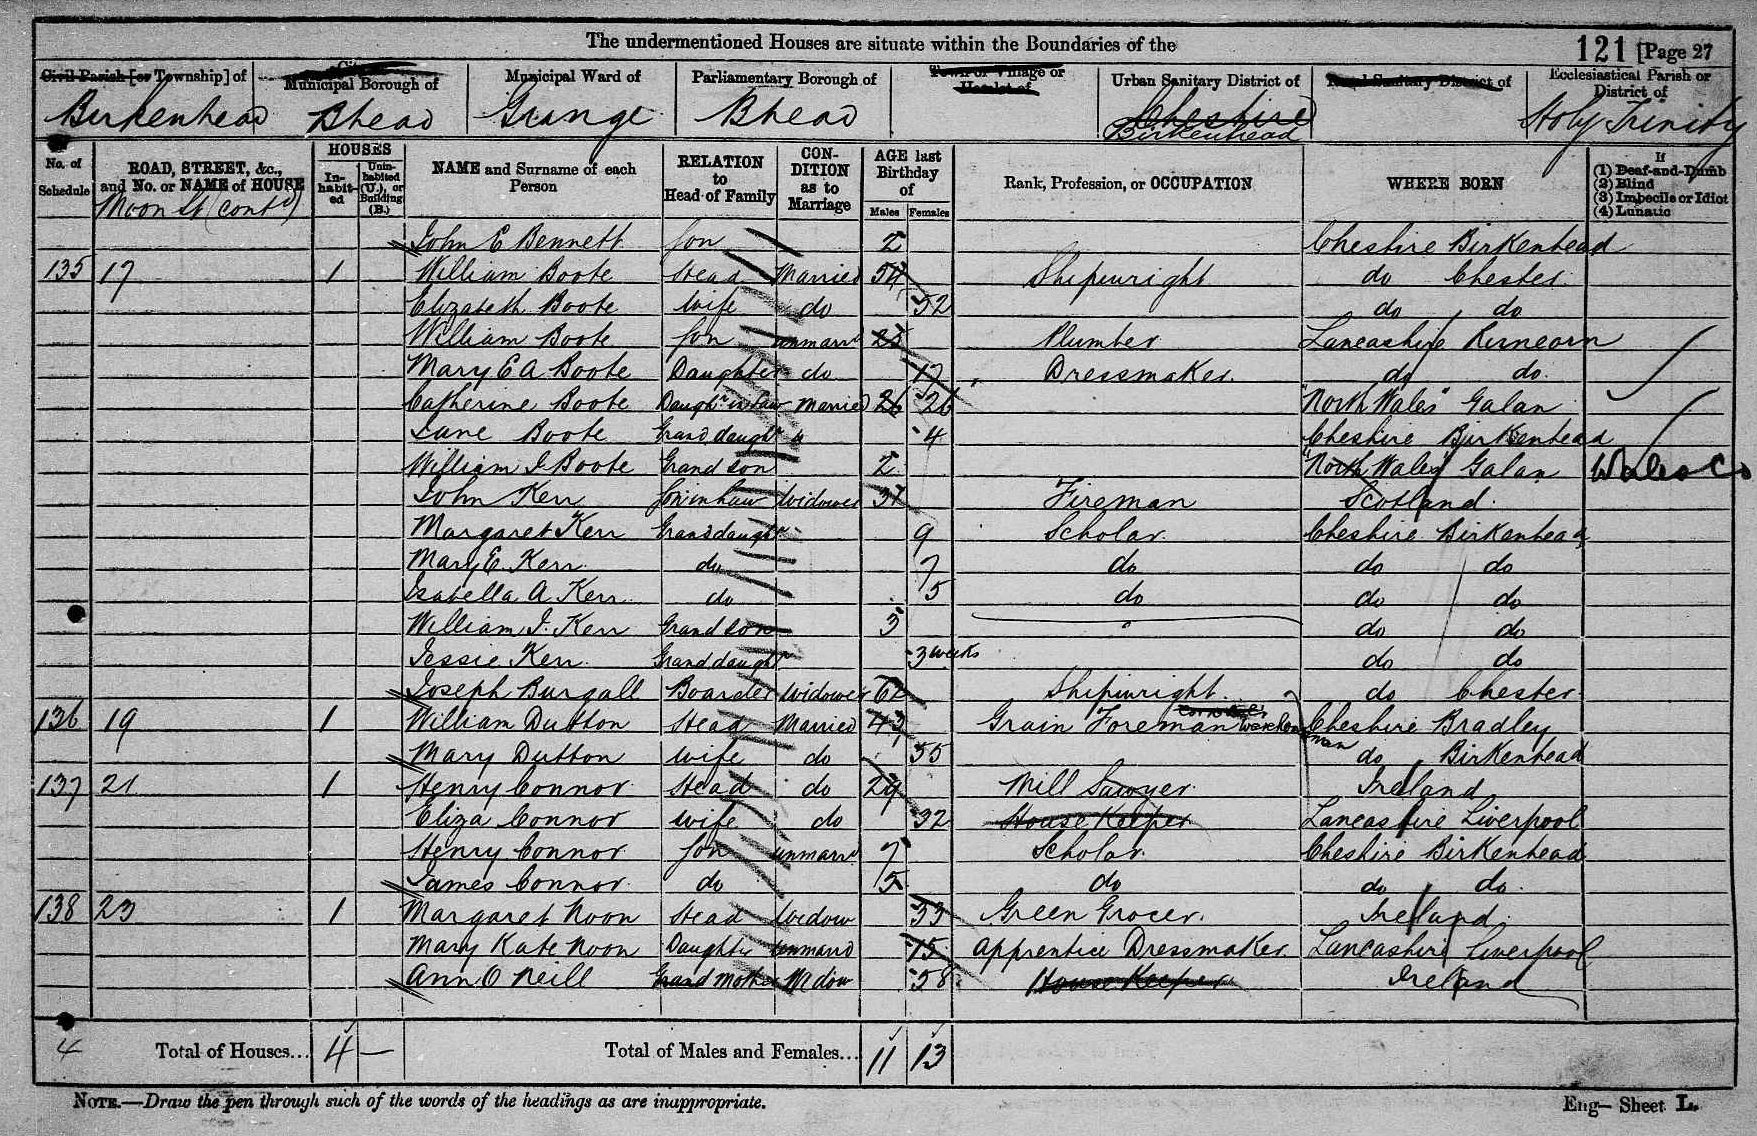 The undermentioned Houses are situate within the Boundaries of the 121 [Page 27
Civil Parish [or Township] of City or Municipal Borough of Municipal Ward of Parliamentary Borough of Town or Village or Hamlet of Urban Sanitary District of Rural Sanitary District of Ecclesiastical Parish or District of
Birkenhead Bhead Grange Bhead Cheshire Birkenhead Holy Trinity
No. of Schedule ROAD, STREET, &c., and No. or NAME of HOUSE HOUSES Inhabited Uninhabited (U.), or Building (B.) NAME and Surname of each Person RELATION to Head of Family CONDITION as to Marriage AGE last Birthday of Males Females Rank, Profession, or OCCUPATION WHERE BORN If (1) Deaf-and-Dumb (2) Blind (3) Imbecile or Idiot (4) Lunatic
Moon St (contd)
John E Bennett Son 2 Cheshire Birkenhead
135 17 1 William Boote Head Married 54 Shipwright do Chester
Elizabeth Boote Wife do 52 do do
William Boote Son unmarrd 25 Plumber Lancashire Runcorn
Mary E A Boote Daughter do 17 Dressmaker do do
Catherine Boote Daughr in law Married 26 26 "North Wales" Galan
Jane Boote Grand daughr 4 Cheshire Birkenhead
William J Boote Grand son 2 "North Wales" Galan Wales Co
John Kerr Son in Law Widower 37 Fireman Scotland
Margaret Kerr Granddaughr 9 Scholar Cheshire Birkenhead
Mary E. Kerr do 7 do do do
Isabella A Kerr do 5 do do do
William J. Kerr Grand son 3 do do
Jessie Kerr Grand daughr 3 weeks do do
Joseph Burgall Boarder Widower Shipwright do Chester
136 19 1 William Dutton Head Married 43 Grain Foreman warehouseman Cheshire Bradley
Mary Dutton Wife do 55 do Birkenhead
137 21 1 Henry Connor Head do 29 Mill Sawyer Ireland
Eliza Connor Wife do 32 House Keeper Lancashire Liverpool
Henry Connor Son unmarrd 7 Scholar Cheshire Birkenhead
James Connor do 5 do do do
138 23 1 Margaret Noon Head Widow 33 Green Grocer Ireland
Mary Kate Noon Daughtr unmarrd 15 Apprentice Dressmaker Lancashire Liverpool
Ann O Neill Grand Mother Widow 58 House Keeper Ireland
4 Total of Houses... 4 — Total of Males and Females... 11 13
NOTE.—Draw the pen through such of the words of the headings as are inappropriate. Eng— Sheet L.